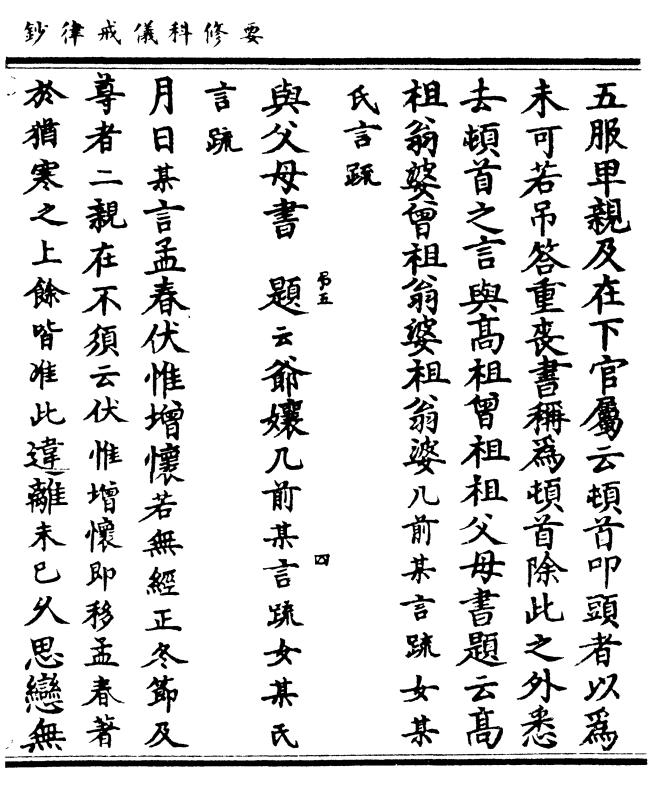 要修科儀戒律鈔
五服卑親及在下官屬云頓首叩頭者以為
未可若吊答重喪書稱為頓首除此之外悉
去頓首之言與高祖曾祖祖父母書題云高
祖翁婆曾祖翁婆祖翁婆几前某言疏女某
氏言疏
與父母書　題云爺孃几前某言疏女某氏
吊五
四
言疏
月日某言孟春伏惟增懷若無經正冬節及
尊者二親在不須云伏惟增懷即移孟春著
於猶寒之上餘皆准此違離未已久思戀無